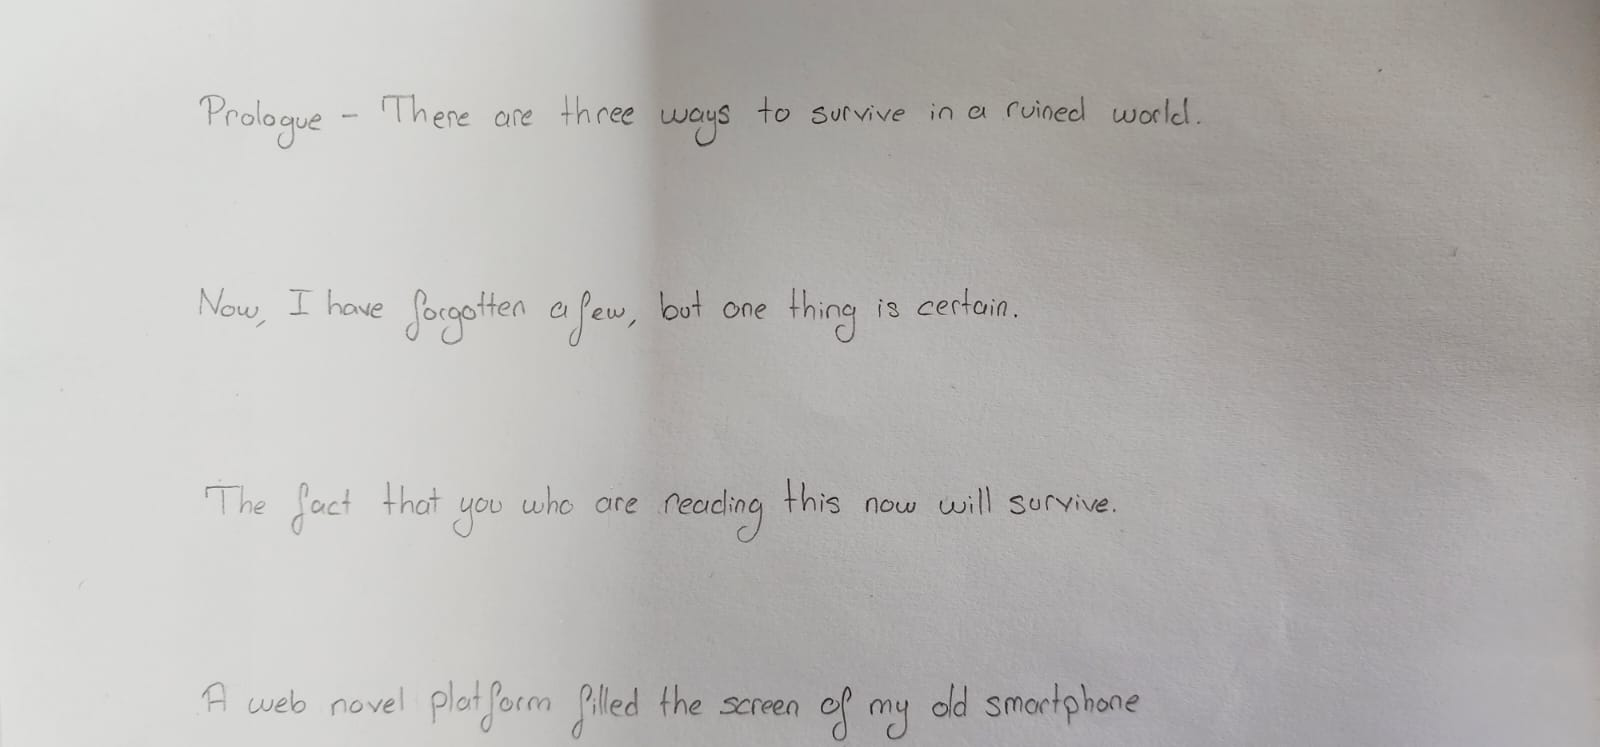 Prologue - There are three ways to survive in a ruined world.
Now, I have forgotten a few, but one thing is certain.
The fact that you who are reading this now will survive.
A web novel platform filled the screen of my old smartphone